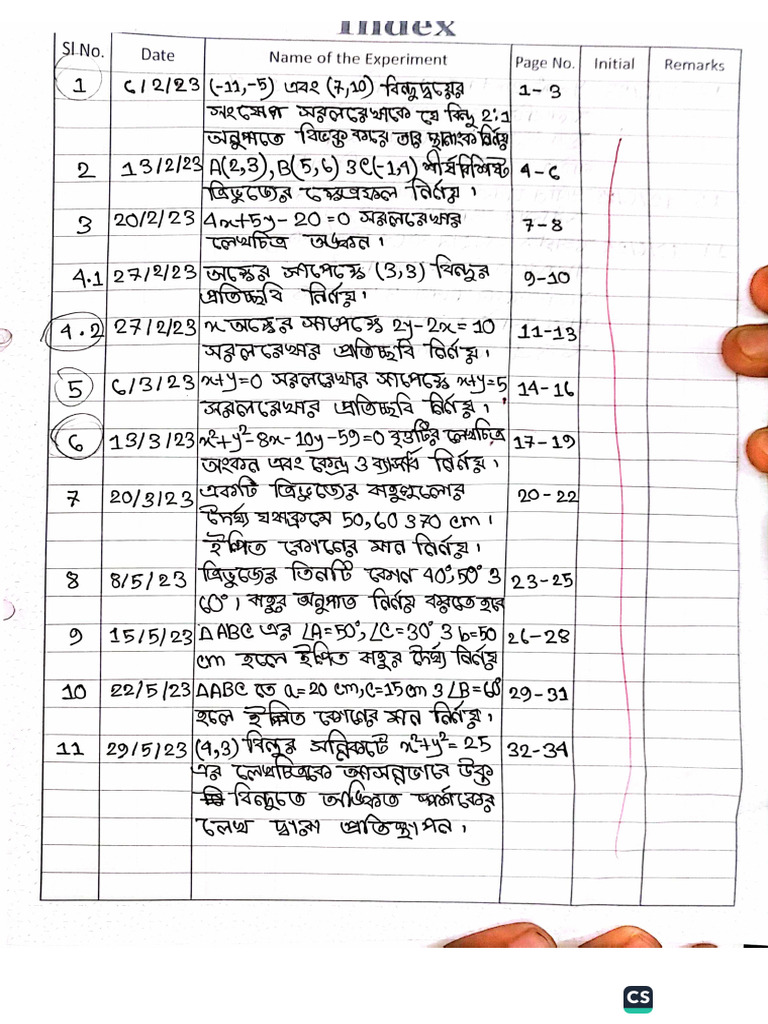 Index
Sl No. Date Name of the Experiment Page No. Initial Remarks
1 6/2/23 (-11,-5) এবং (7,10) বিন্দুদ্বয়ের 1-3
সংযোগ সরলরেখাকে যে বিন্দু 2:1
অনুপাতে বিভক্ত করে তার স্থানাংক নির্ণয়
2 13/2/23 A(2,3), B(5,6) ও C(-1,4) শীর্ষবিশিষ্ট 4-6
ত্রিভুজের ক্ষেত্রফল নির্ণয়।
3 20/2/23 4x+5y-20=0 সরলরেখার 7-8
লেখচিত্র অঙ্কন।
4.1 27/2/23 অক্ষের সাপেক্ষে (3,3) বিন্দুর 9-10
প্রতিচ্ছবি নির্ণয়।
4.2 27/2/23 x অক্ষের সাপেক্ষে 2y-2x=10 11-13
সরলরেখার প্রতিচ্ছবি নির্ণয়।
5 6/3/23 x+y=0 সরলরেখার সাপেক্ষে x+y=5 14-16
সরলরেখার প্রতিচ্ছবি নির্ণয়।
6 13/3/23 x²+y²-8x-10y-59=0 বৃত্তটির লেখচিত্র 17-19
অংকন এবং কেন্দ্র ও ব্যাসার্ধ নির্ণয়।
7 20/3/23 একটি ত্রিভুজের বাহুগুলোর 20-22
দৈর্ঘ্য যথাক্রমে 50, 60 ও 70 cm।
ইপ্সিত কোণের মান নির্ণয়।
8 8/5/23 ত্রিভুজের তিনটি কোন 40°, 50° ও 23-25
60°। বাহুর অনুপাত নির্ণয় করতে হবে
9 15/5/23 ΔABC এর ∠A=50°, ∠C=30° ও b=50 26-28
cm হলে ইপ্সিত বাহুর দৈর্ঘ্য নির্ণয়
10 22/5/23 ΔABC তে a=20 cm, c=15 cm ও ∠B=60° 29-31
হলে ইপ্সিত কোণের মান নির্ণয়।
11 29/5/23 (4,3) বিন্দুর সন্নিকটে x²+y²=25 32-34
এর লেখচিত্রকে আসন্নভাবে উক্ত
বিন্দুতে অঙ্কিত স্পর্শকের
লেখ দ্বারা প্রতিস্থাপন।
CS